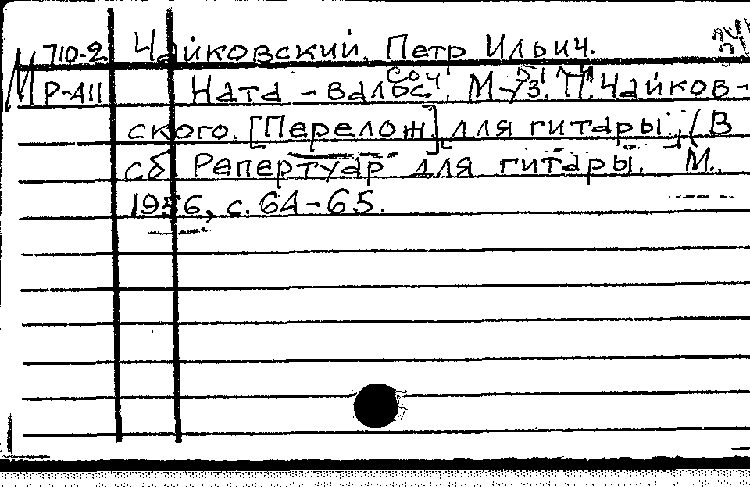 710-2 Чайковский, Петр Ильич.
М Р-411 Ната - вальс. Соч. М-уз. П. Чайков-
ского. [Перелож.] для гитары. (В
сб. Репертуар для гитары. М.,
1956, с. 64-65.